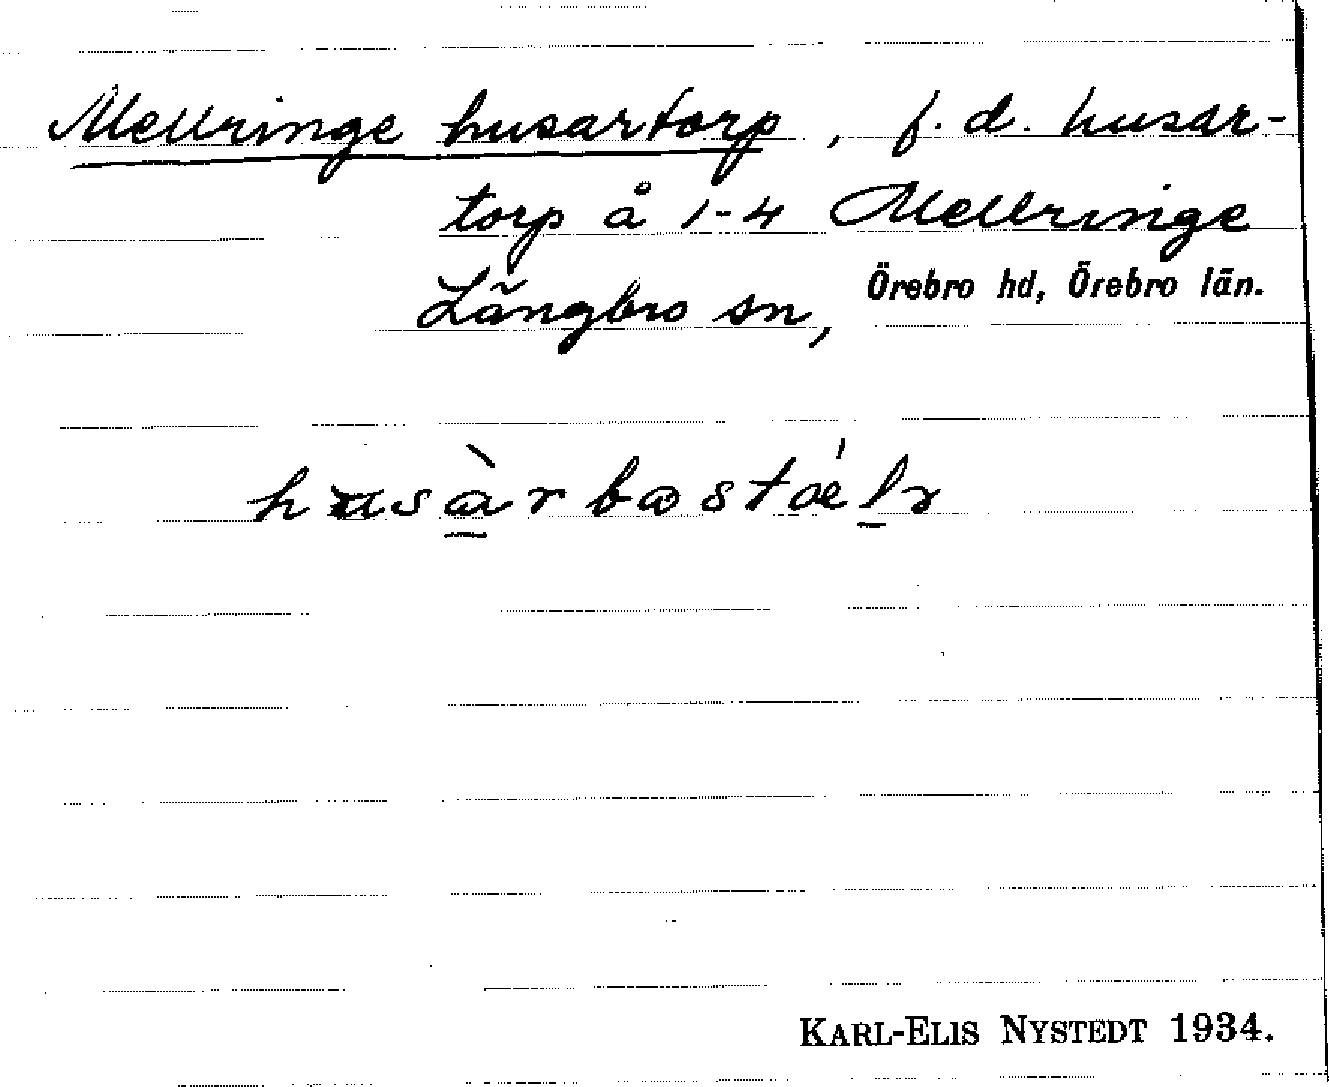 Mellringe husartorp, f.d. husar-
torp å 1-4 Mellringe
Längbro sn, Örebro hd, Örebro län.
husàrbostæ̍lr
KARL-ELIS NYSTEDT 1934.